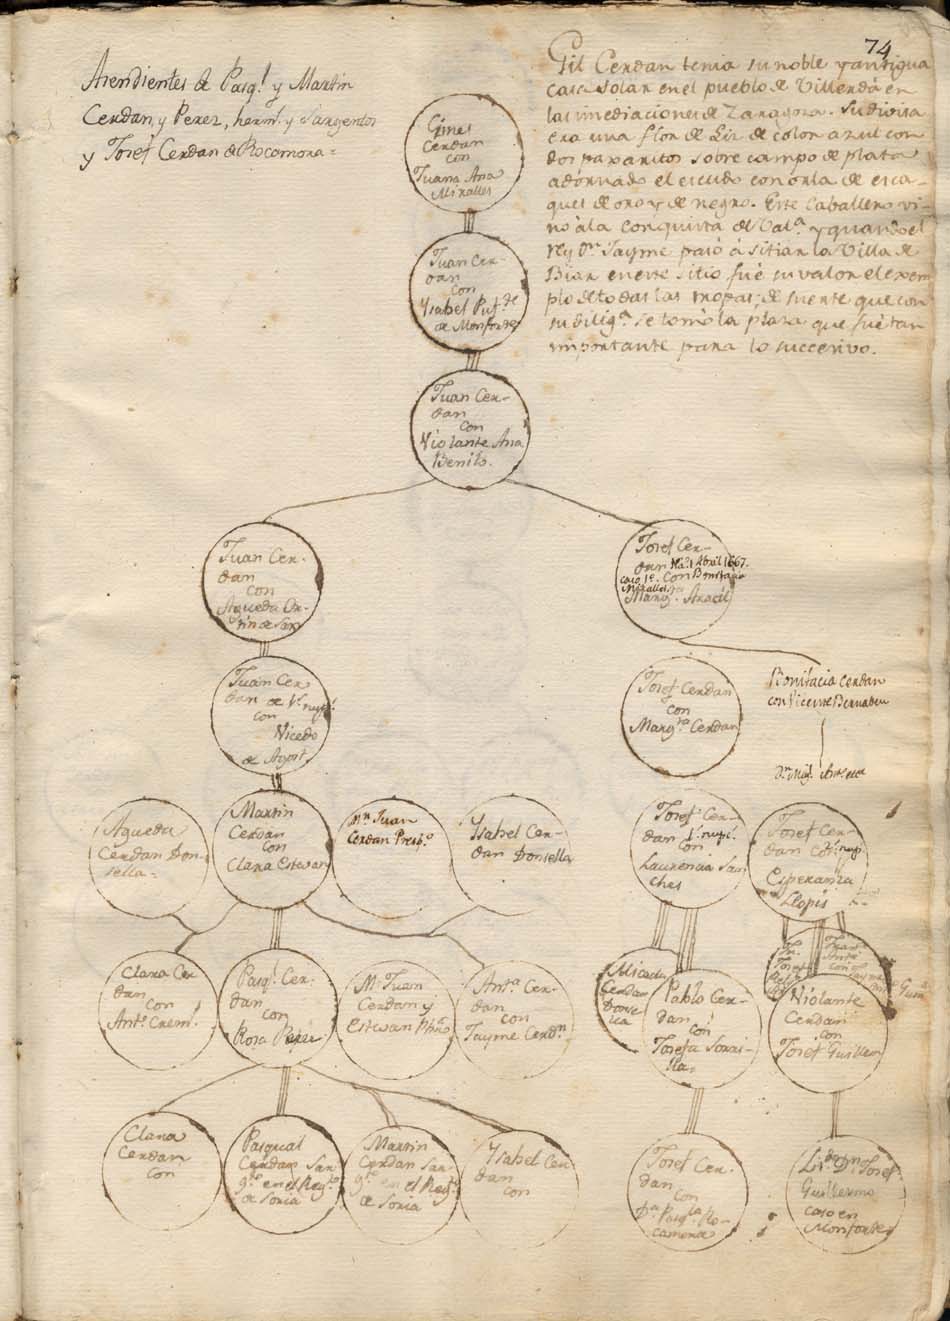 74
Asendientes de Pasql. y Martin
Cerdan, y Perez, herms. y Sargentos
y Josef Cerdan de Rocamora =
Gil Cerdan tenia su noble y antigua
casa solar en el pueblo de Villerdá en
las imediaciones de Zaragoza. Su divisa
era una flor de Liz de color azul con
dos paxaritos sobre campo de plata
adornado el escudo con orla de esca-
ques de oro y de negro. Este Caballero vi-
no á la conquista de Vala. y quando el
rey Dn. Jayme pasó á sitiar la Villa de
Biar en este sitio fué su valor el exem-
plo de todas las tropas; de suerte que con
su diliga. se tomò la plaza que fué tan
importante para lo succesivo.
Gines
Cerdan
con
Juana Ana
Miralles
Juan Cer-
dan
con
Ysabel Puf.
de Monforte
Juan Cer-
dan
con
Violante Ana
Benito.
Juan Cer-
dan
con
Agueda Or-
tin de Sax
Josef Cer-
dan Na. 1 Abril 1667.
caso 1o. con Bonifacia
Miralles
Margta. Aracil
Juan Cer
dan de 1s. nups.
con
Vicedo
de Agost
Josef Cerdan
con
Margta. Cerdan
Bonifacia Cerdan
con Vicente Bernabeu
Dn. Migl.
Agueda
Cerdan Don-
sella =
Martin
Cerdan
con
Clara Estevan
Mn. Juan
Cerdan Presbo.
Ysabel Cer-
dan Donsella
Josef Cer-
dan 1s. nups.
con
Laurencia San
ches
Josef Cer-
dan 2s. nup.
con
Esperanza
Llopis
Clara Cer
dan
con
Anto. Crem.
Pasql. Cer-
dan
con
Rosa Perez
Mn. Juan
Cerdan y
Estevan Pbro.
Anta. Cer-
dan
con
Jayme Cerdn.
Micaela
Cerdan
Donse
lla
Pablo Cer-
dan
con
Josefa Sorai-
lla =
Violante
Cerdan
con
Josef Guillem
Clara
Cerdan
con
Pasqual
Cerdan Sar-
gto. en el Regto.
de Soria
Martin
Cerdan Sar-
gto. en el Regto.
de Soria
Ysabel Cer-
dan
con
Josef Cer-
dan
con
Da. Pasqla. Ro-
camora
Dn. Josef
Guillermo
caso en
Monforte